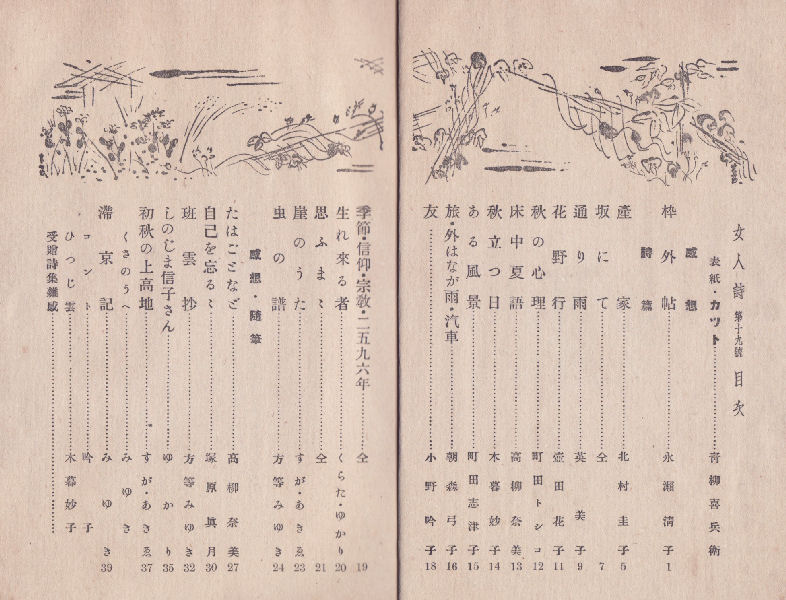 女人詩 第十九號 目次
表紙・カット 青柳喜兵衛
感想
枠外帖 永瀬清子 1
詩篇
產家 北村圭子 5
坂にて 仝 7
通り雨 英美子 9
花野行 壺田花子 11
秋の心理 町田トシコ 12
床中夏語 高柳奈美 13
秋立つ日 木暮妙子 14
ある風景 町田志津子 15
旅・外はなが雨・汽車 朝森弓子 16
友 小野吟子 18
季節・信仰・宗教・二五九六年 仝 19
生れ來る者 くらた・ゆかり 20
思ふまゝ 仝 21
崖のうた すが・あきゑ 23
虫の譜 方等みゆき 24
感想・隨筆
たはごとなど 高柳奈美 27
自己を忘るゝ 塚原眞月 30
班雲抄 方等みゆき 32
しのじま信子さん ゆかり 35
初秋の上高地 すが・あきゑ 37
くさのうへ みゆき
滯京記 みゆき 39
コント 吟子
ひつじ雲 木暮妙子
受贈詩集雜感